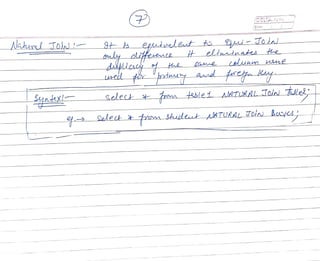 7
Natural Join:- It is equivalent to Equi-Join
only difference it eliminates the
duplicacy of the same column name
used for primary and foreign key.
Syntax:- Select * from table1 NATURAL JOIN table2;
eg → Select * from student NATURAL JOIN